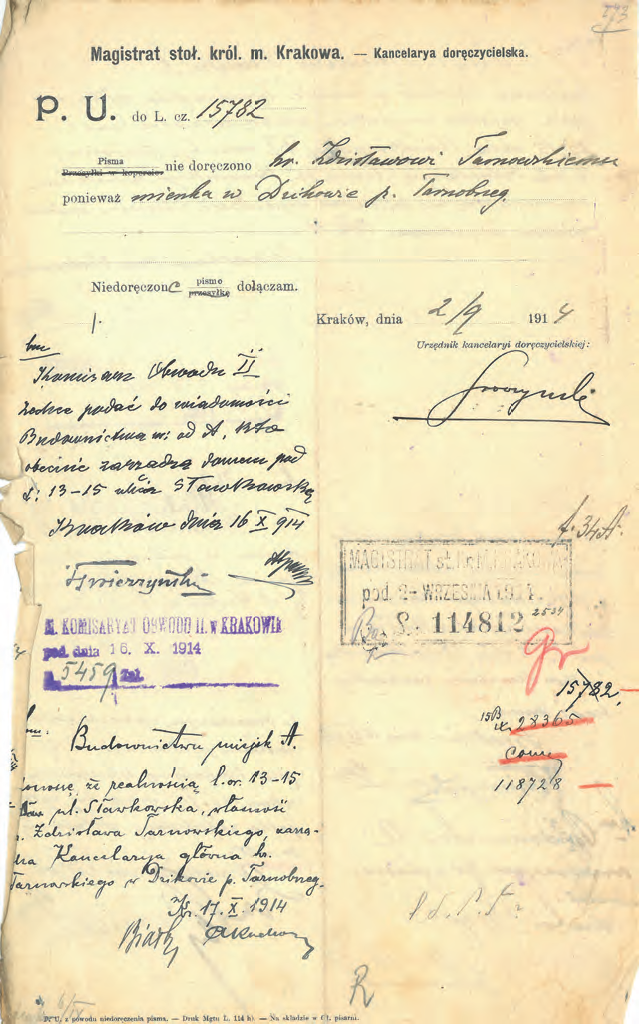 Magistrat stoł. król. m. Krakowa. — Kancelarya doręczycielska.
P. U. do L. cz. 15782
Pisma
Przesyłki w kopercie nie doręczono hr. Zdzisławowi Tarnowskiemu
ponieważ mieszka w Dzikowie p. Tarnobrzeg.
Niedoręczone pismo
przesyłkę dołączam.
Kraków, dnia 2/9 1914
Urzędnik kancelaryi doręczycielskiej:
Komisarz Obwodu II
zechce podać do wiadomości
Budownictwa m. od A, kto
obecnie zarządza domem pod
L: 13-15 ulica Sławkowska
Kraków dnia 16 X 914
f. 34 A.
MAGISTRAT st. kr. m. KRAKOWA
pod. 2 - WRZEŚNIA 1914.
L. 114812
M. KOMISARYAT OBWODU II. w KRAKOWIE
pod. dnia 16. X. 1914
L. 5459
Gr
15782.
15B
IX. 28365
118728 —
Budownictwu miejsk A.
że realnością l. or. 13-15
ul. Sławkowska, własność
Zdzisława Tarnowskiego, zarzą-
Kancelarya główna hr.
Tarnowskiego w Dzikowie p. Tarnobrzeg.
Kr. 17. X. 1914
R
P. U. z powodu niedoręczenia pisma. — Druk Mgtu L. 114 h). — Na składzie w Gł. pisarni.